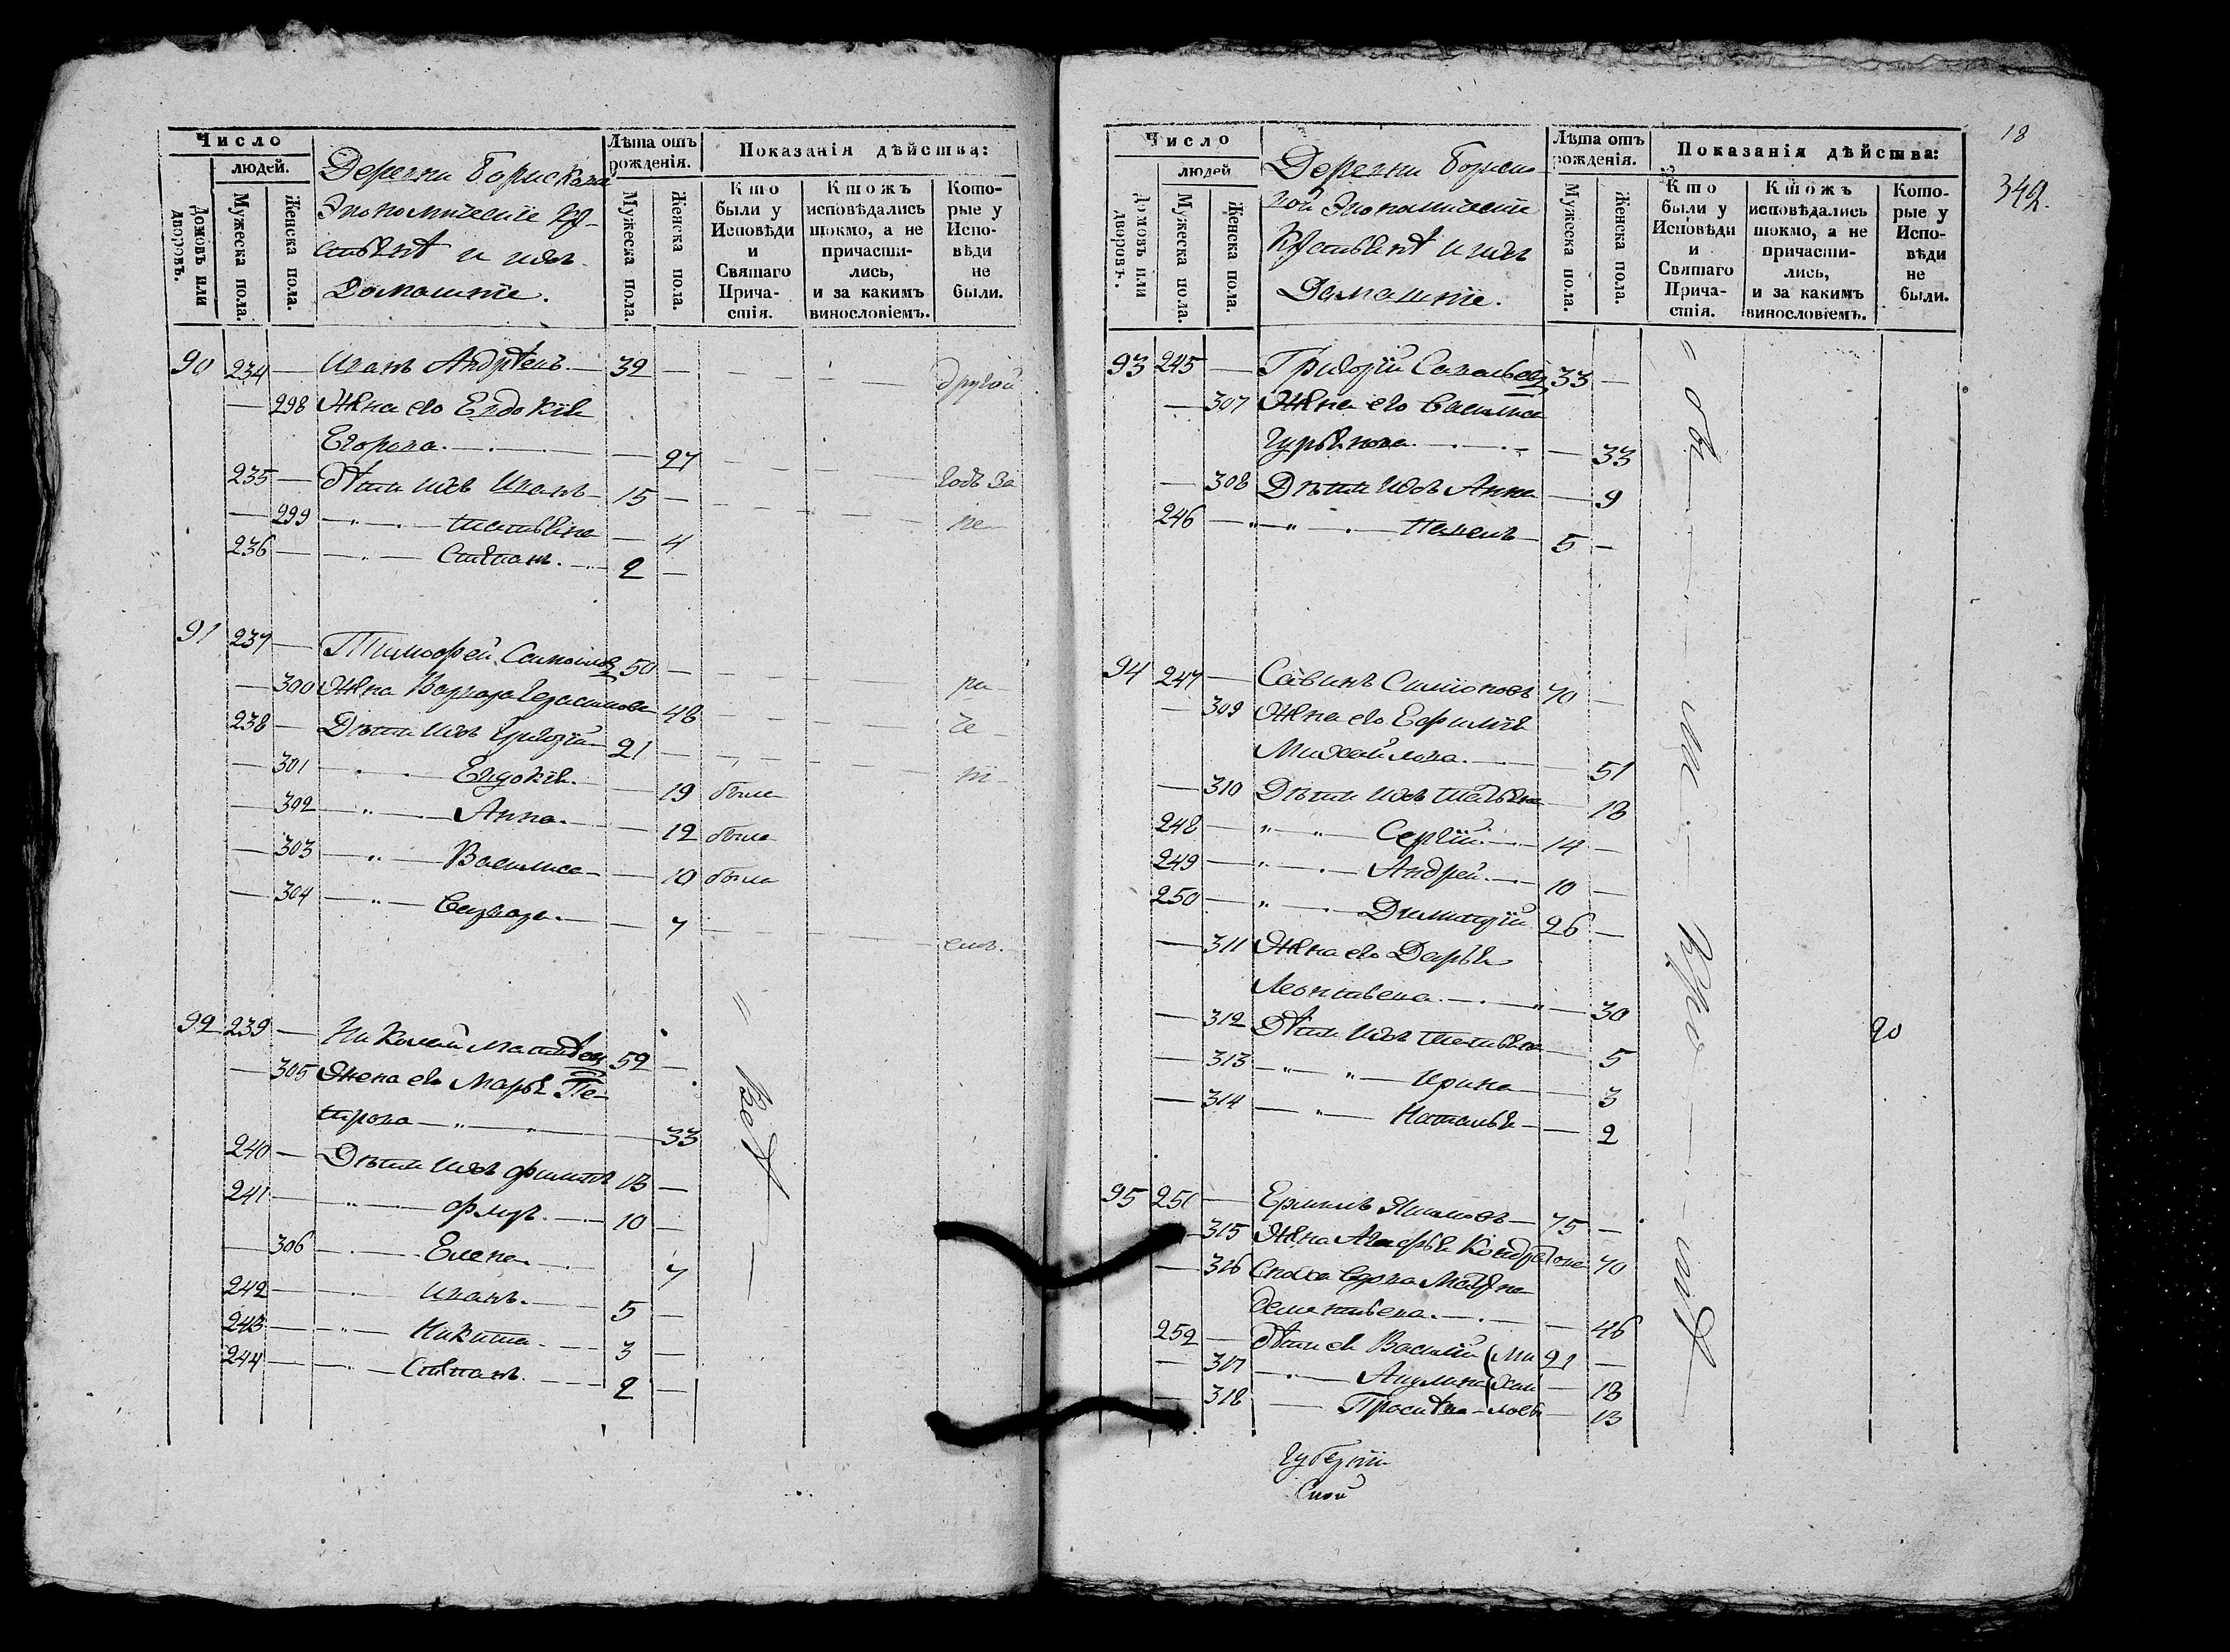 Число
людей.
Домовъ или дворовъ.
Мужеска пола.
Женска пола.
Деревни Борискова
Экономическіе кре-
стьянѣ и ихъ
Домашніе.
Лѣта отъ рожденія.
Мужеска пола.
Женска пола.
Показанія дѣйства:
Кто были у Исповѣди и Святаго Прича- стія.
Ктожъ исповѣдались токмо, а не причасти- лись, и за какимъ винословіемъ.
Кото- рые у Испо- вѣди не были.
90 234 — Иванъ Андрѣевъ — 39 — другой
— 298 Жена его Евдокія
Егорова — 27
235 — Дѣти ихъ Иванъ — 15 — годъ за
— 299 — Татьяна — 4 не
236 — Степанъ — 2 —
91 237 — Тимофей Самойловъ 50 —
— 300 Жена Варвара Герасимова — 48 ра
238 — Дѣти ихъ Григорій — 21 — че
— 301 — Евдокія — 19 была ні
— 302 — Анна — 12 была
— 303 — Василиса — 10 была
— 304 — — 7 емъ.
92 239 — Николай Матвѣевъ 59 —
— 305 Жена его Марья Пе-
трова — 33
240 — Дѣти ихъ Филиппъ 13 —
241 — Флоръ — 10 —
— 306 — Елена — 7
242 — Иванъ — 5 —
243 — Никита — 3 —
244 — Степанъ — 2 —
Всѣ
18
342.
Число
людей
Домовъ или дворовъ.
Мужеска пола.
Женска пола.
Деревни Борис
вой Экономическіе
Крестьянѣ и ихъ
Домашніе.
Лѣта отъ рожденія.
Мужеска пола.
Женска пола.
Показанія дѣйства:
Кто были у Исповѣди и Святаго Прича- стія.
Ктожъ исповѣдались токмо, а не причасти- лись, и за какимъ винословіемъ.
Кото- рые у Испо- вѣди не были.
93 245 — Григорій Савельевъ 33 —
— 307 Жена его Василиса
Гурьянова — 33
— 308 Дѣти ихъ Анна — 9
246 — Павелъ — 5 —
94 247 — Савинъ Симіоновъ 70 —
— 309 Жена его Ефимія
Михайлова — 51
— 310 Дѣти ихъ Татьяна — 18
248 — Сергій — 14 —
249 — Андрей — 10 —
250 — Димитрій 26 —
— 311 Жена его Дарья
Леонтьева — 30
— 312 Дѣти ихъ Татьяна — 5
— 313 — Ирина — 3
— 314 — Наталья — 2
20
95 251 — Ермилъ — 75 —
315 Жена Агафья Кондратова 70
— 316 Сноха вдова Матрена
Дементьева — 46
252 — Дѣти ея Василій (Ми 21 —
— 317 — Акулина (хай — 18
— 318 — Просковья — ловы — 13